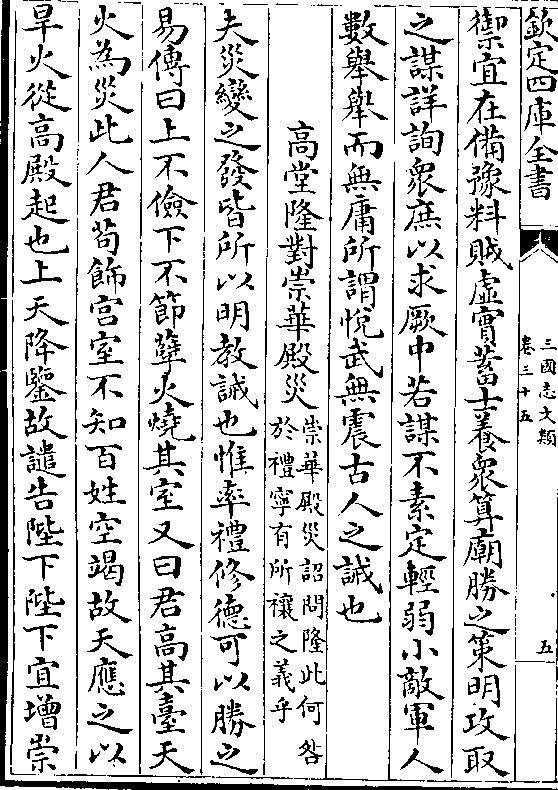 欽定四庫全書
三國志文類
卷三十五
五
禦宜在備豫料賊虛實蓄士養衆算廟勝之策明攻取
之謀詳詢衆庶以求厥中若謀不素定輕弱小敵軍人
數舉舉而無庸所謂悅武無震古人之誡也
高堂隆對崇華殿災
崇華殿災詔問隆此何咎
於禮寧有所禳之義乎
夫災變之發皆所以明教誡也惟率禮修德可以勝之
易傳曰上不儉下不節孽火燒其室又曰君高其臺天
火為災此人君苟飾宫室不知百姓空竭故天應之以
旱火從高殿起也上天降鑒故譴告陛下陛下宜增崇